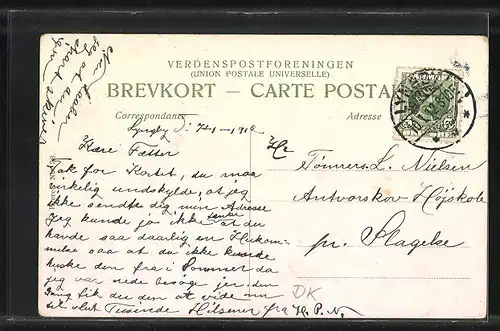 Nu haaber
jeg at du
snart
VERDENSPOSTFORENINGEN
(UNION POSTALE UNIVERSELLE)
BREVKORT — CARTE POSTALE
Correspondance
Adresse
LYNGBY
Lyngby D:
Kære Fætter
Tak for Kortet, du maa
virkelig undskylde, at jeg
ikke sendte dig min Adresse
Jeg kunde jo ikke tænke at du
havde saa daarlig en Hukom-
melse saa at du ikke kunde
huske den fra i Sommer da
jeg var nede besøge jer den
Gang fik du den at vide nu
til slut Tusende Hilsener fra H. P. N.
Hr
Tømrer L. Nielsen
Antvorskov Højskole
pr. Slagelse
DK